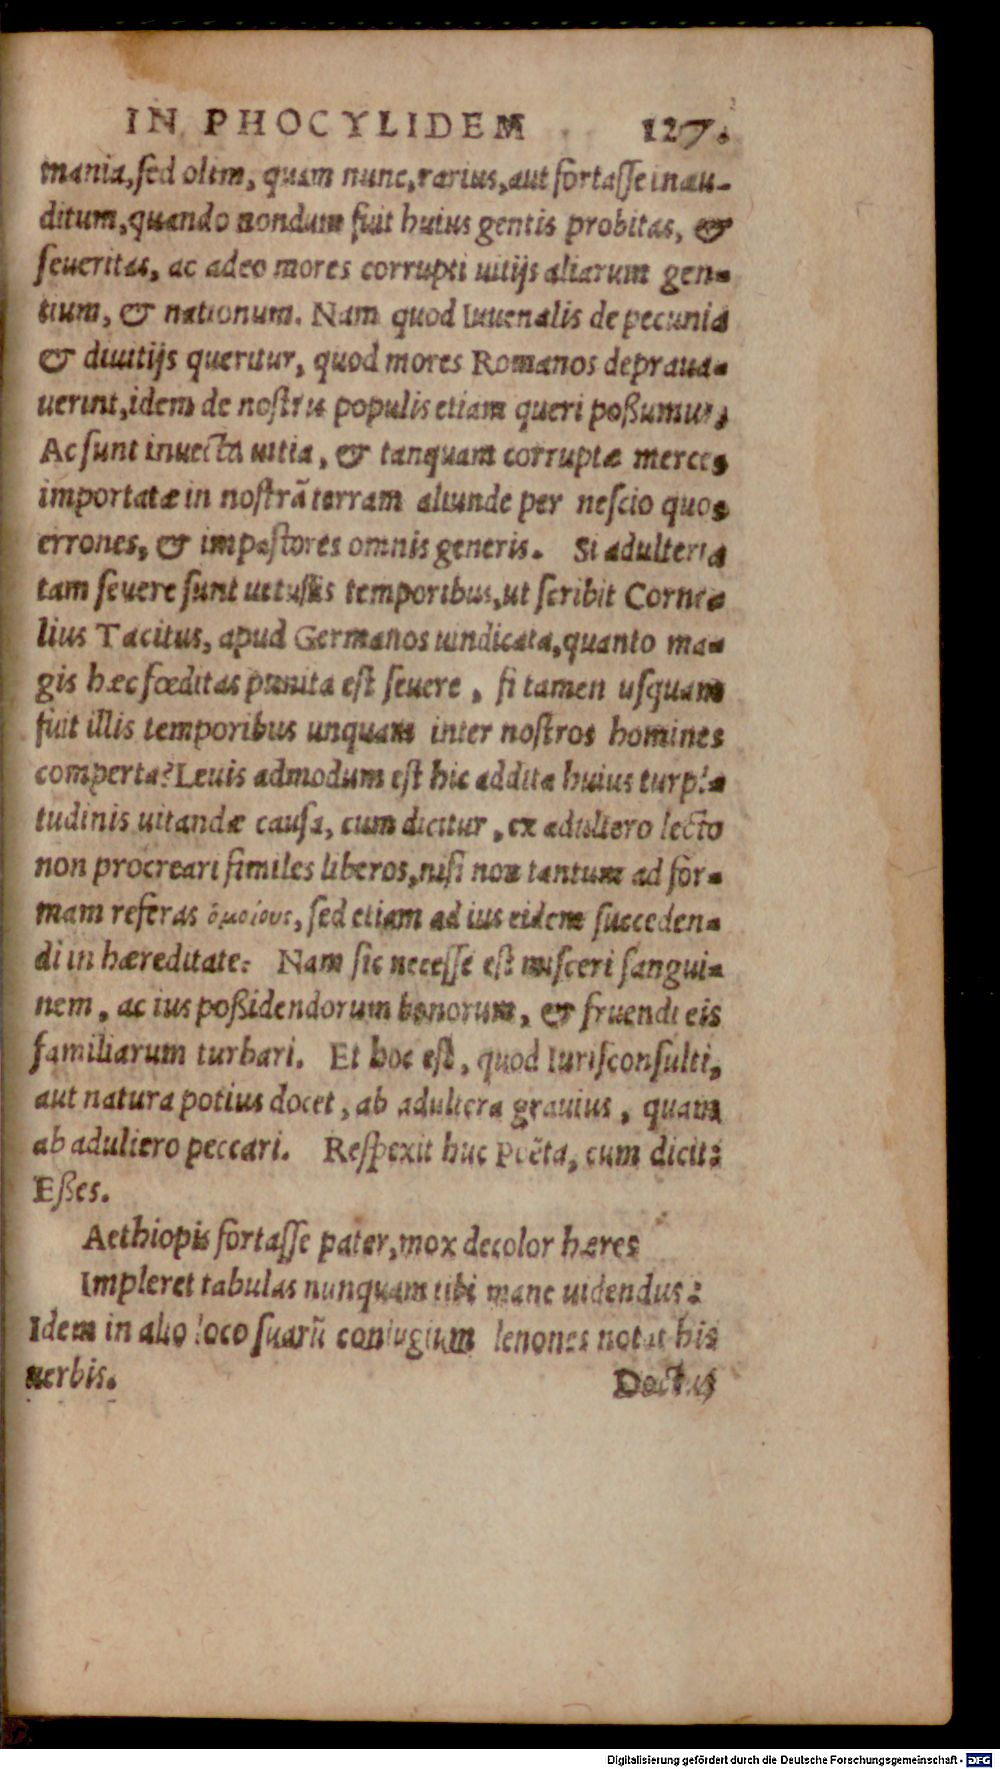 IN PHOCYLIDEM 127.
mania, sed olim, quam nunc, rarius, aut fortasse inau-
ditum, quando nondum fuit huius gentis probitas, &
seueritas, ac adeo mores corrupti uitijs aliarum gen-
tium, & nationum. Nam quod Iuuenalis de pecunia
& diuitijs queritur, quod mores Romanos depraua-
uerint, idem de nostris populis etiam queri poßumus,
Ac sunt inuecta uitia, & tanquam corruptæ merces
importatæ in nostrã terram aliunde per nescio quos
errones, & impostores omnis generis. Si adulteria
tam seuere sunt uetustis temporibus, ut scribit Corne-
lius Tacitus, apud Germanos uindicata, quanto ma-
gis hæc fœditas punita est seuere, si tamen usquam
fuit illis temporibus unquam inter nostros homines
comperta? Leuis admodum est hic addita huius turpi-
tudinis uitandæ causa, cum dicitur, ex adultero lecto
non procreari similes liberos, nisi non tantum ad for-
mam referas ὁμοίους, sed etiam ad ius eidem succeden-
di in hæreditate: Nam sic necesse est misceri sangui-
nem, ac ius poßidendorum bonorum, & fruendi eis
familiarum turbari. Et hoc est, quod Iurisconsulti,
aut natura potius docet, ab adultera grauius, quam
ab adultero peccari. Respexit huc Poëta, cum dicit:
Eßes.
Aethiopis fortasse pater, mox decolor hæres
Impleret tabulas nunquam tibi mane uidendus:
Idem in alio loco suarũ coniugium lenones notat his
uerbis.
Doctus
Digitalisierung gefördert durch die Deutsche Forschungsgemeinschaft - DFG